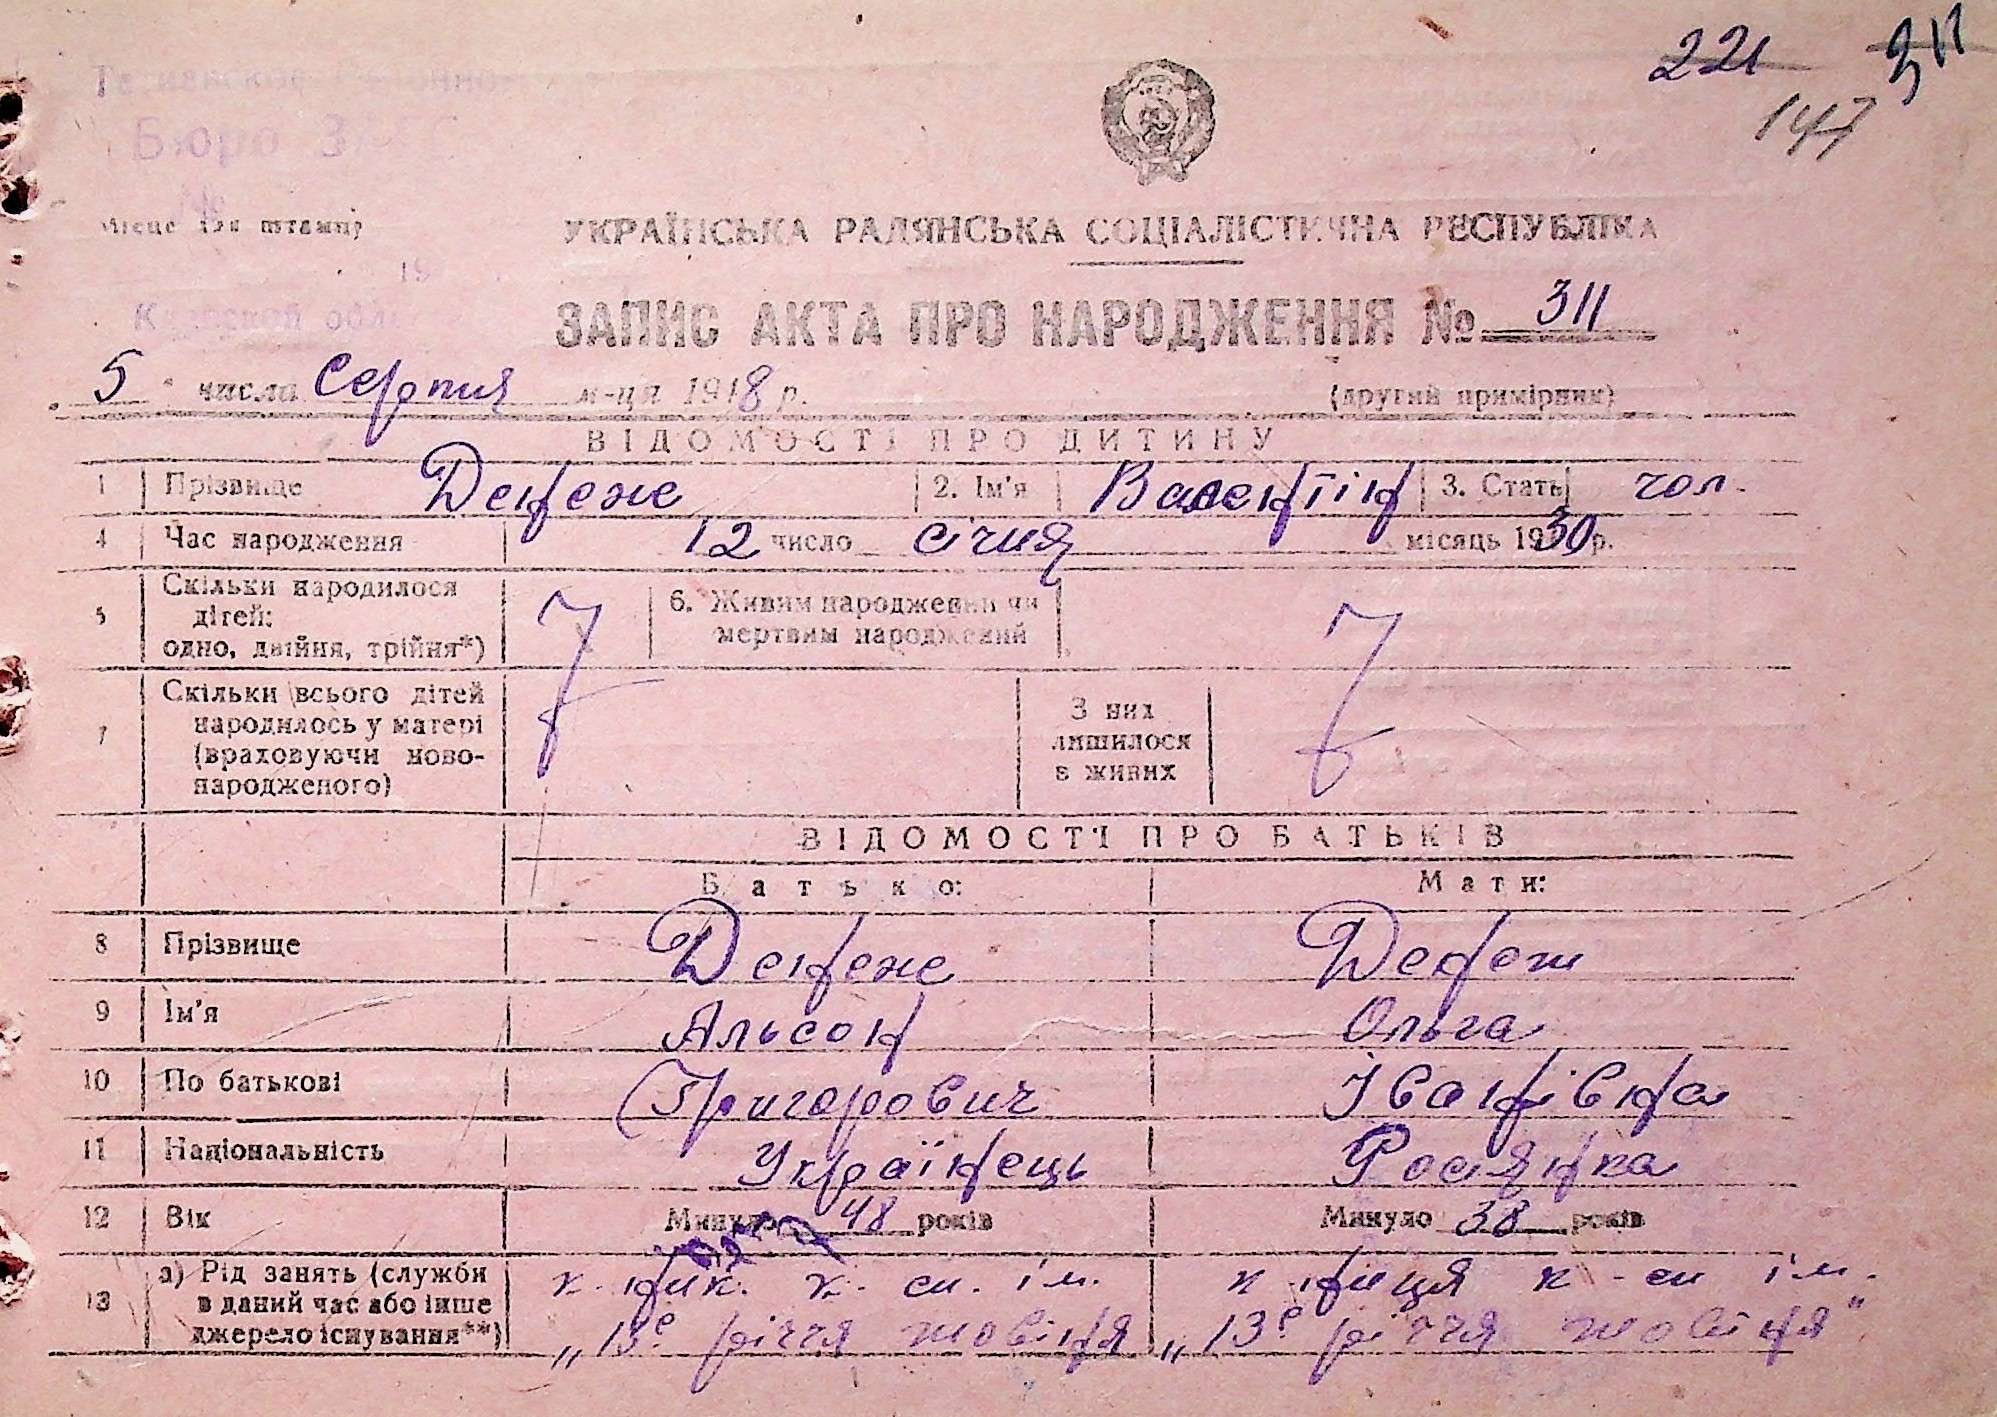 221 311
147
Бюро
Місце для штампу
УКРАЇНСЬКА РАДЯНСЬКА СОЦІАЛІСТИЧНА РЕСПУБЛІКА
ЗАПИС АКТА ПРО НАРОДЖЕННЯ № 311
5 числа Серпня м-ця 1948 р. (другий примірник)
ВІДОМОСТІ ПРО ДИТИНУ
1 Прізвище Денеже 2. Ім'я Валентін 3. Стать чол.
4 Час народження 12 число січня місяць 1930 р.
5 Скільки народилося дітей: одно, двійня, трійня*)
6. Живим народжений чи мертвим народжений
7 Скільки всього дітей народилось у матері (враховуючи новонародженого)
З них лишилося в живих
ВІДОМОСТІ ПРО БАТЬКІВ
Батько: Мати:
8 Прізвище Денеже
9 Ім'я Альсон Ольга
10 По батькові Григорович Іванівна
11 Національність Українець Росіянка
12 Вік Минуло 48 років Минуло 38 років
13 а) Рід занять (служби в даний час або інше джерело існування**)
к-ник. к-сп. ім. к-ниця к-сп ім.
„13е річчя жовтня „13е річчя жовтня"